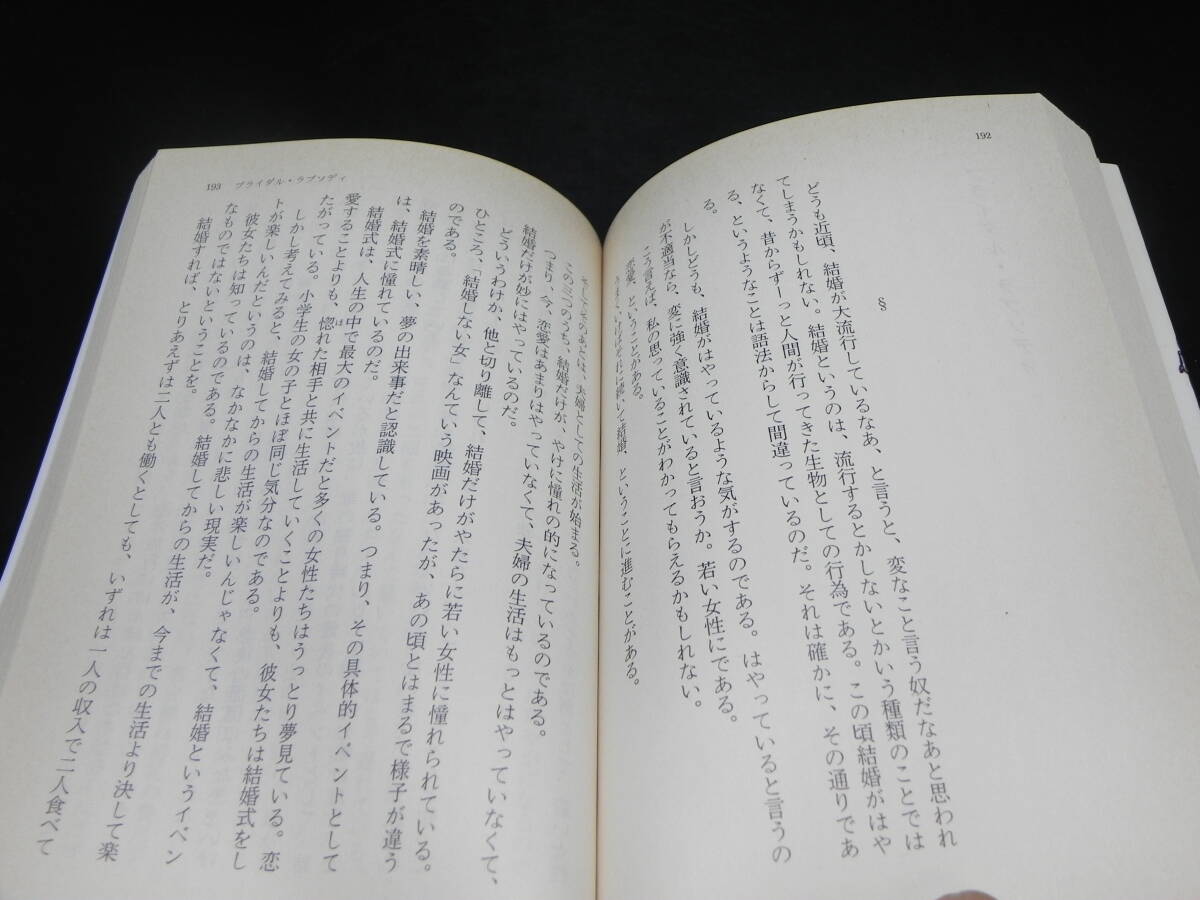 192
§
どうも近頃、結婚が大流行しているなあ、と言うと、変なこと言う奴だなあと思われ
てしまうかもしれない。結婚というのは、流行するとかしないとかいう種類のことでは
なくて、昔からずーっと人間が行ってきた生物としての行為である。この頃結婚がはや
る、というようなことは語法からして間違っているのだ。それは確かに、その通りであ
る。
しかしどうも、結婚がはやっているような気がするのである。はやっていると言うの
が不適当なら、変に強く意識されていると言おうか。若い女性にである。
こう言えば、私の思っていることがわかってもらえるかもしれない。
恋愛、ということがある。
うまくいけばそれに続いて結婚、ということに進むことがある。
193 ブライダル・ラプソディ
そしてそのあとは、夫婦としての生活が始まる。
この三つのうち、結婚だけが、やけに憧れの的になっているのである。
つまり、今、恋愛はあまりはやっていなくて、夫婦の生活はもっとはやっていなくて、
結婚だけが妙にはやっているのだ。
どういうわけか、他と切り離して、結婚だけがやたらに若い女性に憧れられている。
ひところ、「結婚しない女」なんていう映画があったが、あの頃とはまるで様子が違う
のである。
結婚を素晴しい、夢の出来事だと認識している。つまり、その具体的イベントとして
は、結婚式に憧れているのだ。
結婚式は、人生の中で最大のイベントだと多くの女性たちはうっとり夢見ている。恋
愛することよりも、惚れた相手と共に生活していくことよりも、彼女たちは結婚式をし
たがっている。小学生の女の子とほぼ同じ気分なのである。
しかし考えてみると、結婚してからの生活が楽しいんじゃなくて、結婚というイベン
トが楽しいんだというのは、なかなかに悲しい現実だ。
彼女たちは知っているのである。結婚してからの生活が、今までの生活より決して楽
なものではないということを。
結婚すれば、とりあえずは二人とも働くとしても、いずれは一人の収入で二人食べて